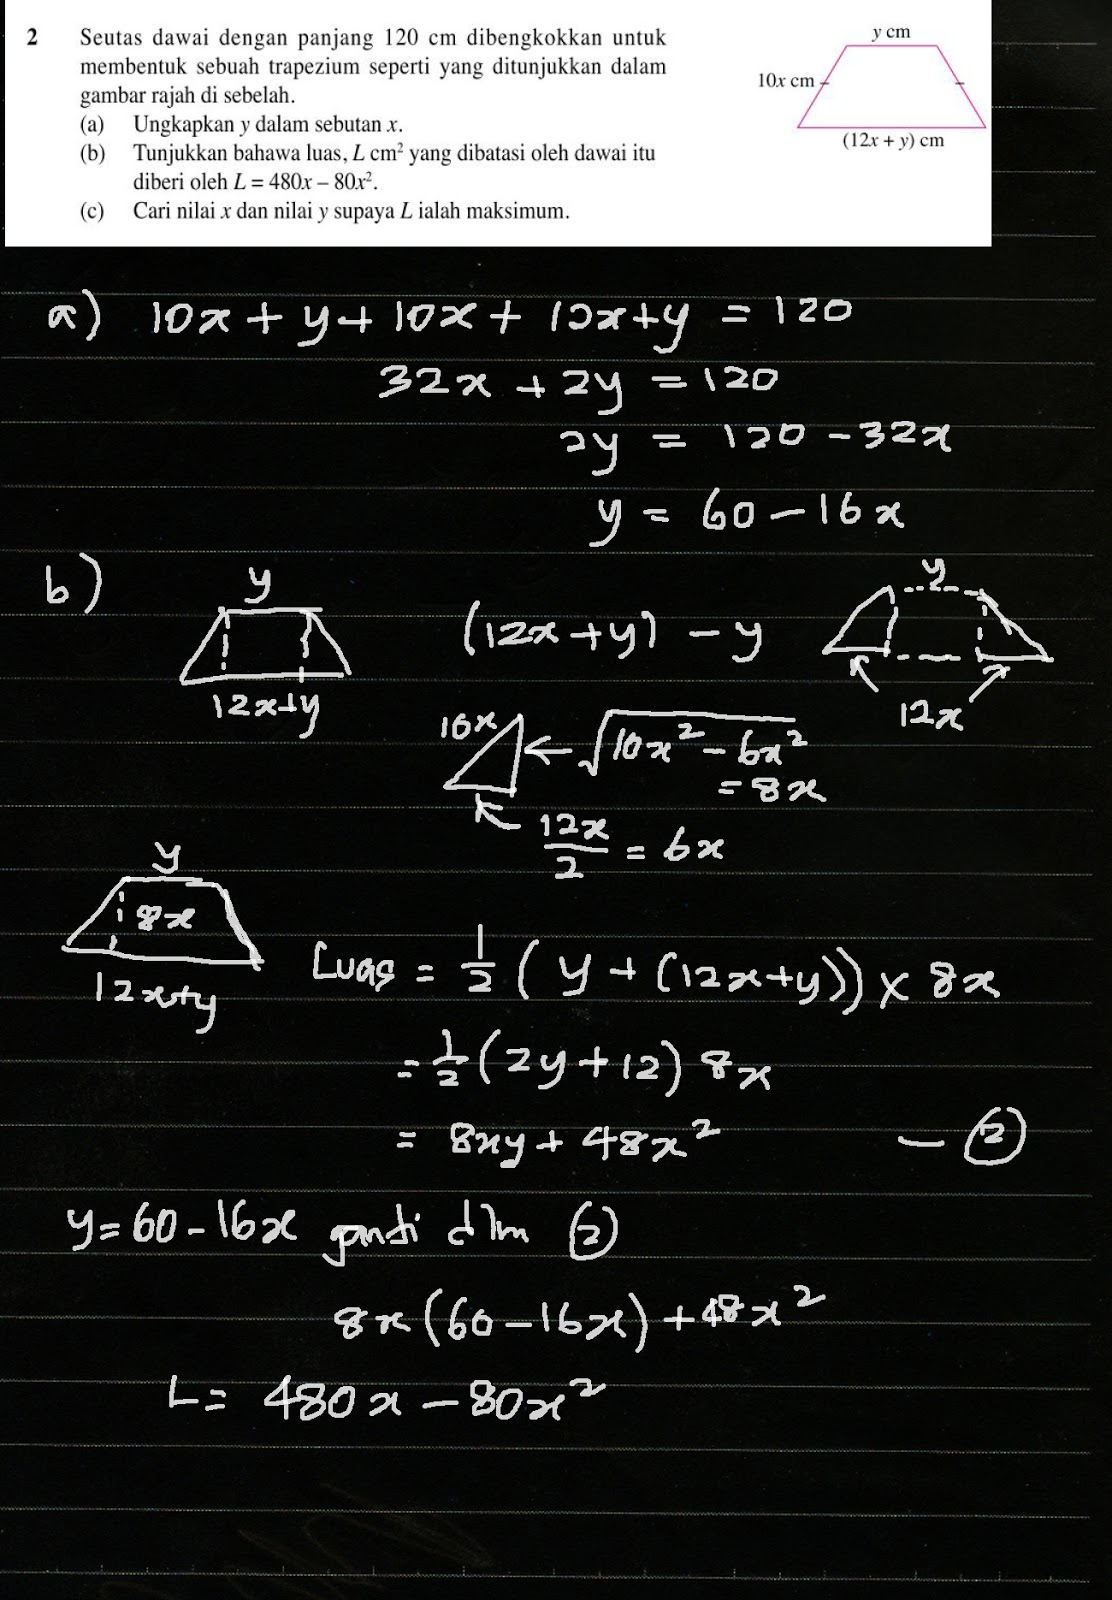 2 Seutas dawai dengan panjang 120 cm dibengkokkan untuk
membentuk sebuah trapezium seperti yang ditunjukkan dalam
gambar rajah di sebelah.
(a) Ungkapkan y dalam sebutan x.
(b) Tunjukkan bahawa luas, L cm² yang dibatasi oleh dawai itu
diberi oleh L = 480x – 80x².
(c) Cari nilai x dan nilai y supaya L ialah maksimum.
y cm
10x cm
(12x + y) cm
a) 10x + y + 10x + 12x + y = 120
32x + 2y = 120
2y = 120 - 32x
y = 60 - 16x
b)
y
12x+y
(12x + y) - y
y
12x
10x
√10x² - 6x²
= 8x
12x/2 = 6x
y
8x
12x+y
Luas = 1/2 (y + (12x+y)) × 8x
= 1/2 (2y + 12) 8x
= 8xy + 48x² - ②
y = 60 - 16x ganti dlm ②
8x(60 - 16x) + 48x²
L = 480x - 80x²